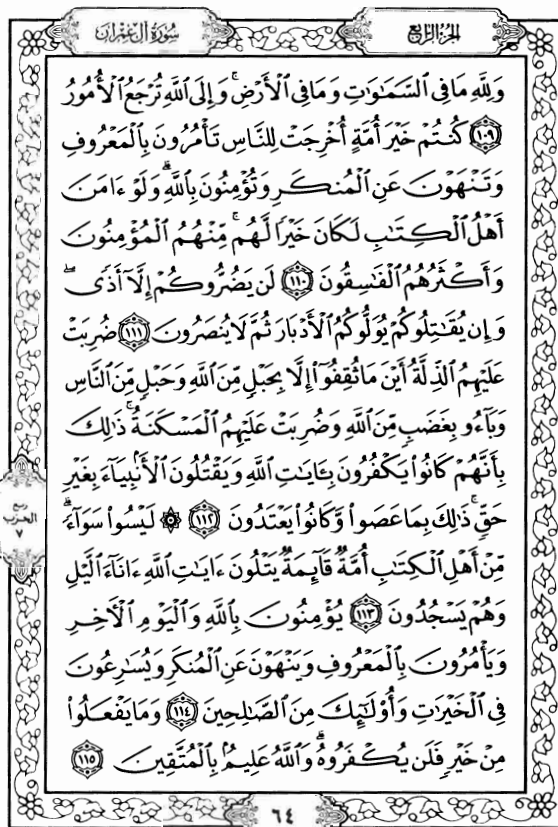 سُورَةُ آلِ عِمْرَانَ
الجُزْءُ الرَّابِعُ
وَلِلَّهِ مَا فِي ٱلسَّمَٰوَٰتِ وَمَا فِي ٱلْأَرْضِ ۚ وَإِلَى ٱللَّهِ تُرْجَعُ ٱلْأُمُورُ
﴿١٠٩﴾ كُنتُمْ خَيْرَ أُمَّةٍ أُخْرِجَتْ لِلنَّاسِ تَأْمُرُونَ بِٱلْمَعْرُوفِ
وَتَنْهَوْنَ عَنِ ٱلْمُنكَرِ وَتُؤْمِنُونَ بِٱللَّهِ ۗ وَلَوْ ءَامَنَ
أَهْلُ ٱلْكِتَٰبِ لَكَانَ خَيْرًا لَّهُم ۚ مِّنْهُمُ ٱلْمُؤْمِنُونَ
وَأَكْثَرُهُمُ ٱلْفَٰسِقُونَ ﴿١١٠﴾ لَن يَضُرُّوكُمْ إِلَّآ أَذًى ۖ
وَإِن يُقَٰتِلُوكُمْ يُوَلُّوكُمُ ٱلْأَدْبَارَ ثُمَّ لَا يُنصَرُونَ ﴿١١١﴾ ضُرِبَتْ
عَلَيْهِمُ ٱلذِّلَّةُ أَيْنَ مَا ثُقِفُوٓا۟ إِلَّا بِحَبْلٍ مِّنَ ٱللَّهِ وَحَبْلٍ مِّنَ ٱلنَّاسِ
وَبَآءُو بِغَضَبٍ مِّنَ ٱللَّهِ وَضُرِبَتْ عَلَيْهِمُ ٱلْمَسْكَنَةُ ۚ ذَٰلِكَ
بِأَنَّهُمْ كَانُوا۟ يَكْفُرُونَ بِـَٔايَٰتِ ٱللَّهِ وَيَقْتُلُونَ ٱلْأَنۢبِيَآءَ بِغَيْرِ
حَقٍّ ۚ ذَٰلِكَ بِمَا عَصَوا۟ وَّكَانُوا۟ يَعْتَدُونَ ﴿١١٢﴾ ۞ لَيْسُوا۟ سَوَآءً ۗ
مِّنْ أَهْلِ ٱلْكِتَٰبِ أُمَّةٌ قَآئِمَةٌ يَتْلُونَ ءَايَٰتِ ٱللَّهِ ءَانَآءَ ٱلَّيْلِ
وَهُمْ يَسْجُدُونَ ﴿١١٣﴾ يُؤْمِنُونَ بِٱللَّهِ وَٱلْيَوْمِ ٱلْءَاخِرِ
وَيَأْمُرُونَ بِٱلْمَعْرُوفِ وَيَنْهَوْنَ عَنِ ٱلْمُنكَرِ وَيُسَٰرِعُونَ
فِي ٱلْخَيْرَٰتِ وَأُو۟لَٰٓئِكَ مِنَ ٱلصَّٰلِحِينَ ﴿١١٤﴾ وَمَا يَفْعَلُوا۟
مِنْ خَيْرٍ فَلَن يُكْفَرُوهُ ۗ وَٱللَّهُ عَلِيمٌۢ بِٱلْمُتَّقِينَ ﴿١١٥﴾
ربع
الحزب
٧
٦٤